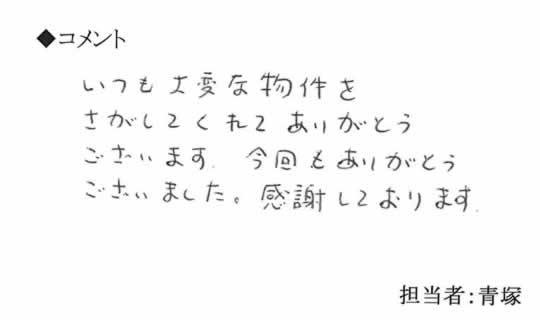 ◆コメント
いつも大変な物件を
さがしてくれてありがとう
ございます. 今回もありがとう
ございました。感謝しております.
担当者:青塚